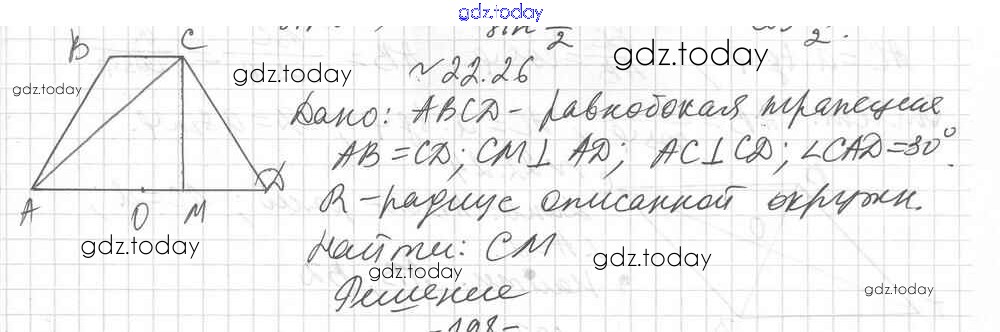 gdz.today
sin 2
2.
B C gdz.today gdz.today
gdz.today
~22.26
Дано: ABCD - равнобокая трапеция
AB = CD; CM ⊥ AD; AC ⊥ CD; ∠CAD = 30°.
R - радиус описанной окружн.
A O M D
gdz.today
Найти: CM
gdz.today gdz.today
gdz.today
Решение
- 198 -